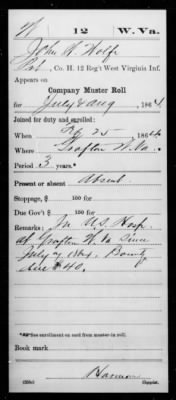 W 12 W. Va.
John W. Wolfe
Pvt, Co. H, 12 Reg't West Virginia Inf.
Appears on
Company Muster Roll
for July & Aug, 1864.
Joined for duty and enrolled:
When Feb 25, 1864
Where Grafton W. Va.
Period 3 years.*
Present or absent Absent
Stoppage, $ 100 for
Due Gov't $ 100 for
Remarks: In U.S. Hosp.
at Grafton W. Va. Since
July 7 1864. Bounty
due $40.
*See enrollment on card from muster-in roll.
Book mark
Copyist.